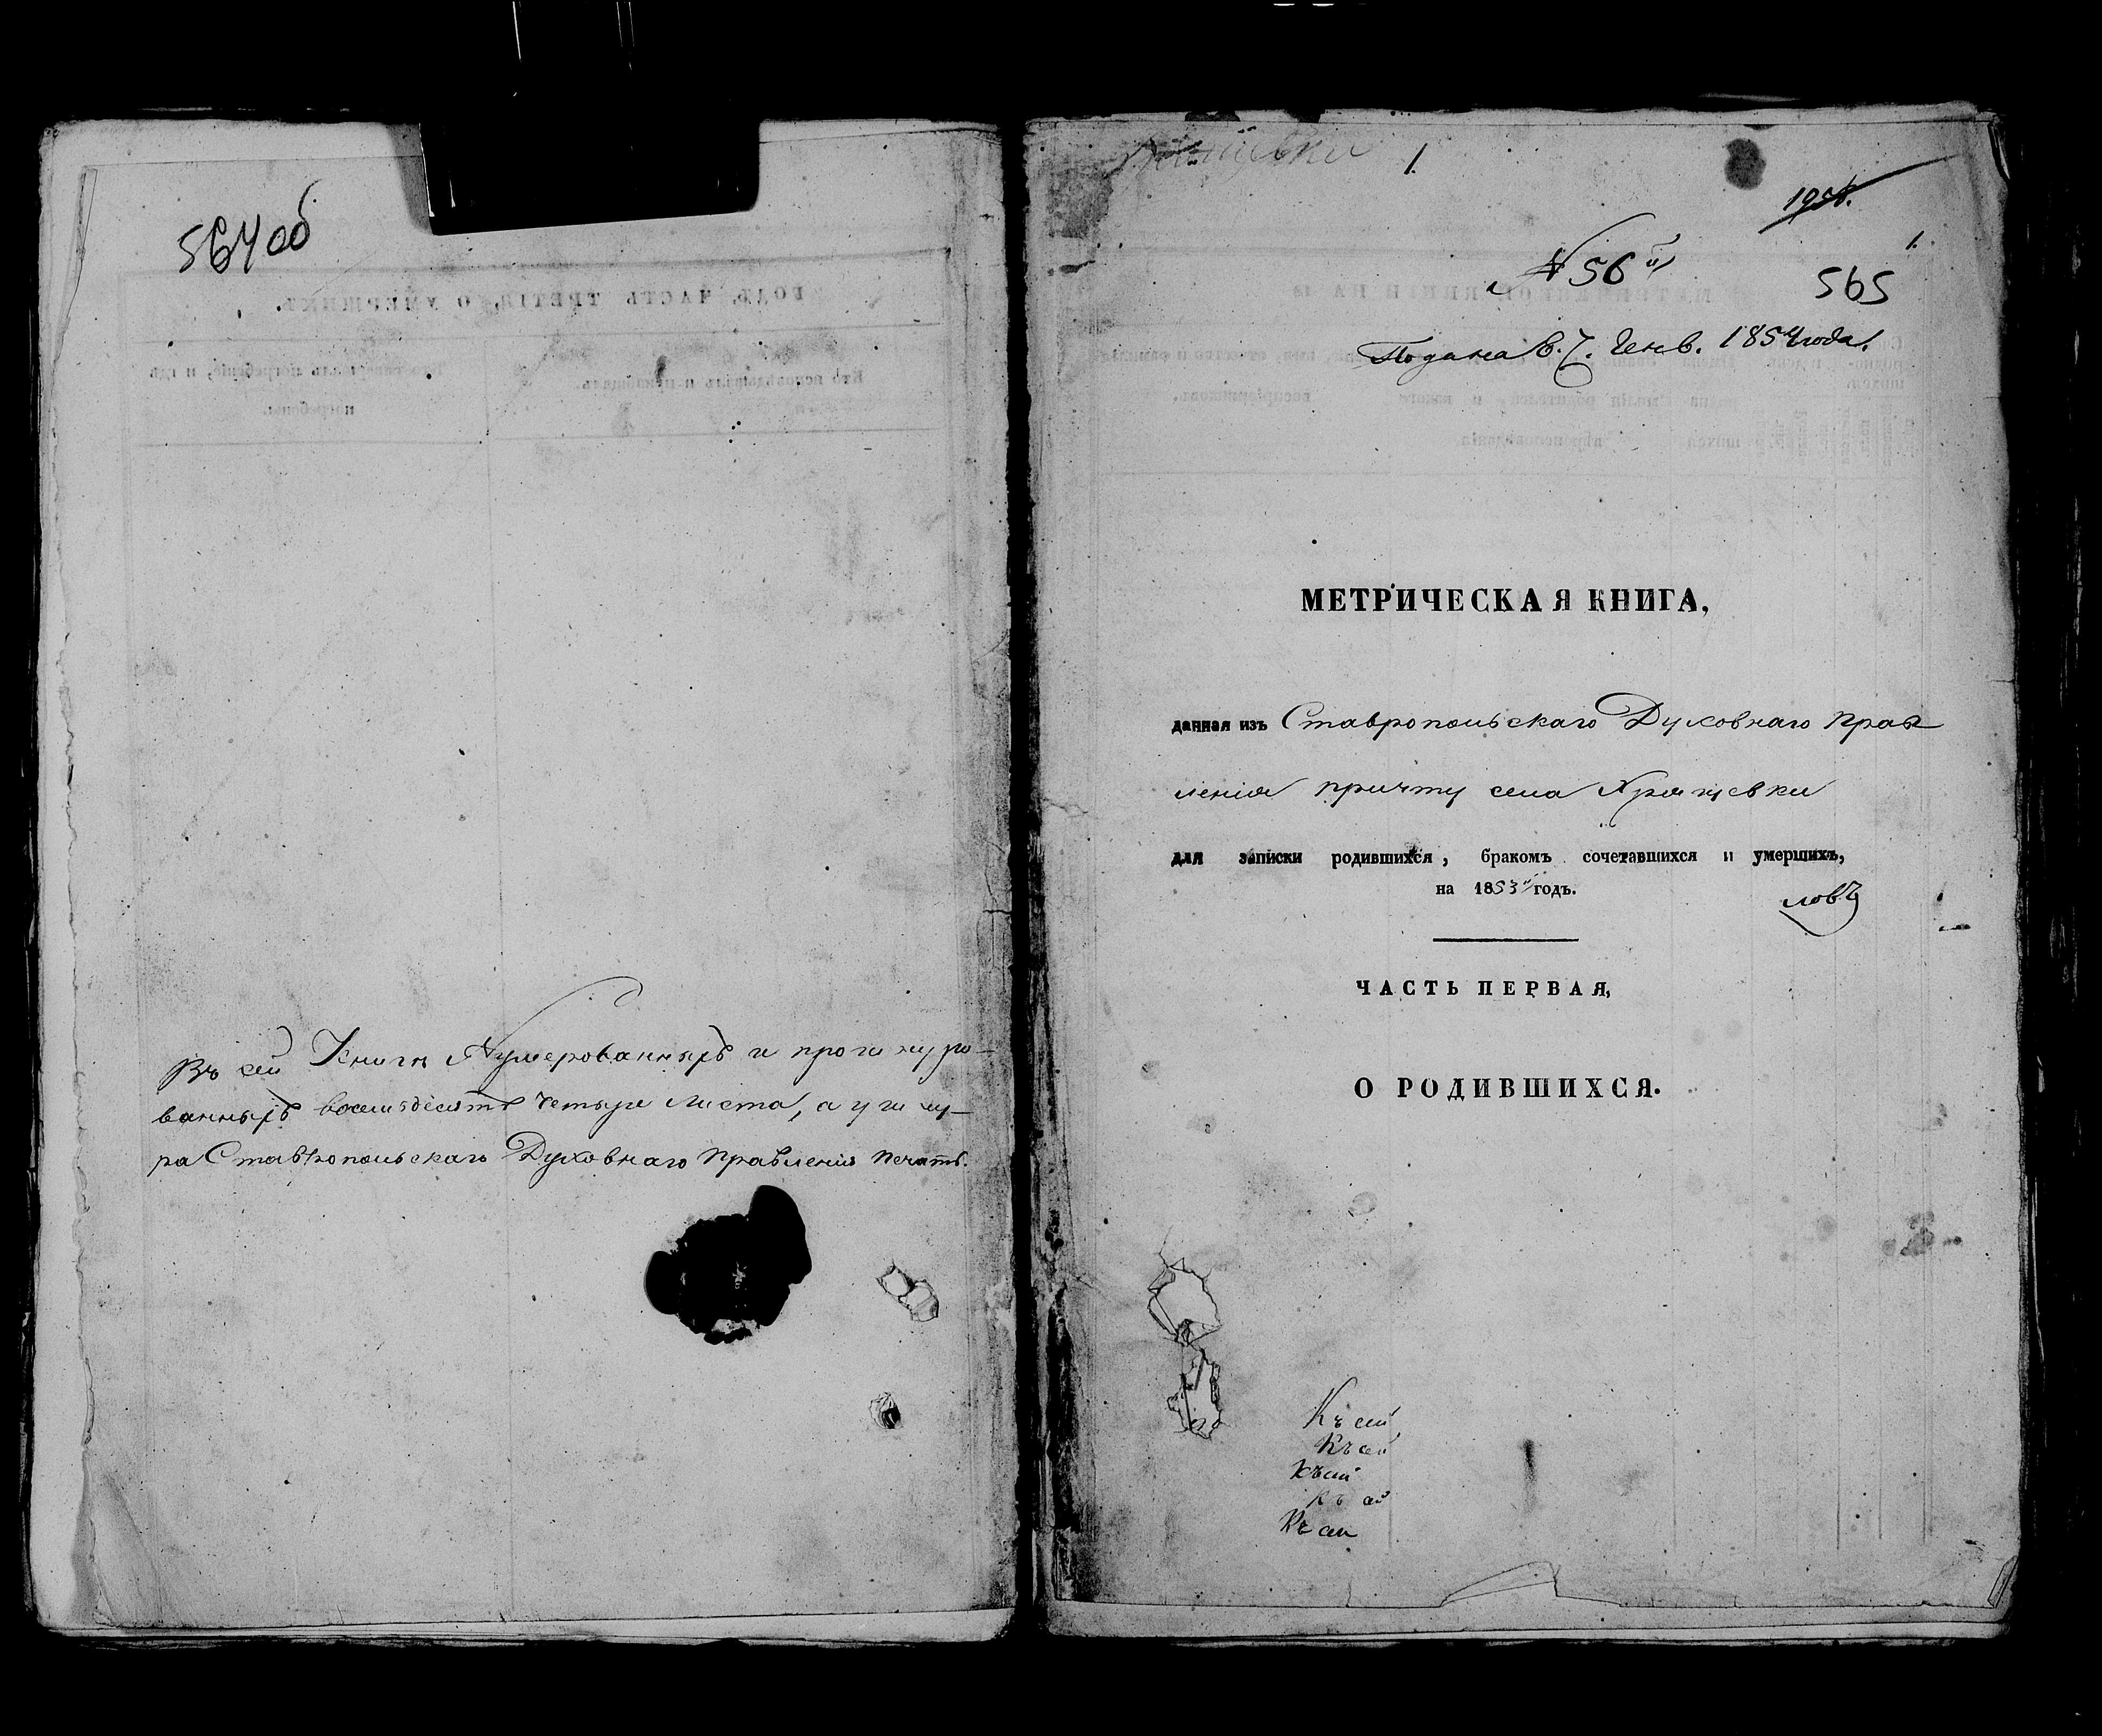 564об
Въ сей Книгѣ Нумерованныхъ и прошнуро-
ванныхъ восемьдесятъ четыре листа, а у шну-
ра Ставропольскаго Духовнаго Правленія печать.
1.
1.
№ 56й
565
Подана 7. Генв. 1854 года.
МЕТРИЧЕСКАЯ КНИГА,
данная изъ Ставропольскаго Духовнаго Прав
ленія причту села Хрящевки
для записки родившихся, бракомъ сочетавшихся и умершихъ,
на 1853й годъ.
ловъ
ЧАСТЬ ПЕРВАЯ,
О РОДИВШИХСЯ.
Къ сей
Къ сей
Къ сей
Къ сей
Къ сей